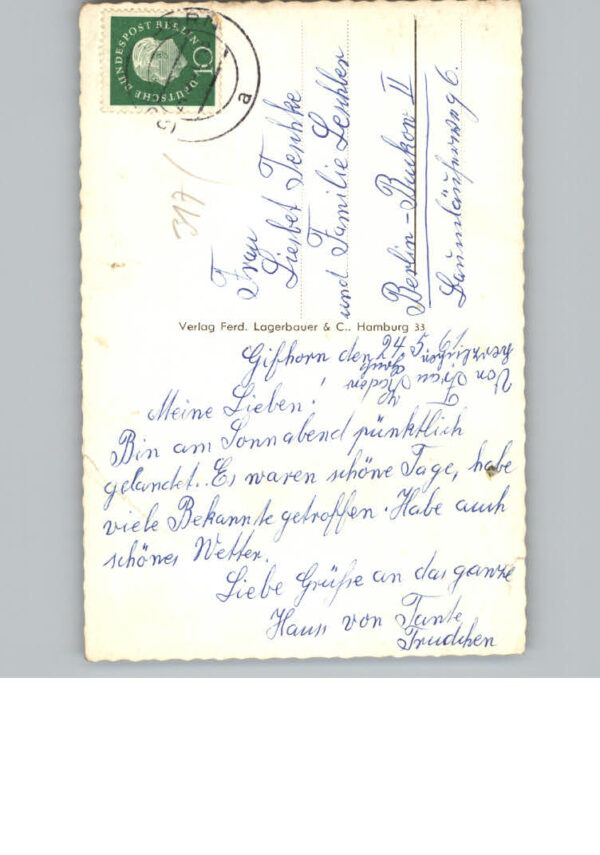 DEUTSCHE BUNDESPOST BERLIN
10
a
317/
Frau
Liesbet Teschke
und Familie Leschber
Berlin-Buckow II
Baumläuferweg 6.
Verlag Ferd. Lagerbauer & C.. Hamburg 33
Gifhorn den 24.5.61
Meine Lieben!
Bin am Sonnabend pünktlich
gelandet. Es waren schöne Tage, habe
viele Bekannte getroffen. Habe auch
schönes Wetter.
Liebe Grüße an das ganze
Haus von Tante
Trudchen
Von Frau
herzlichen